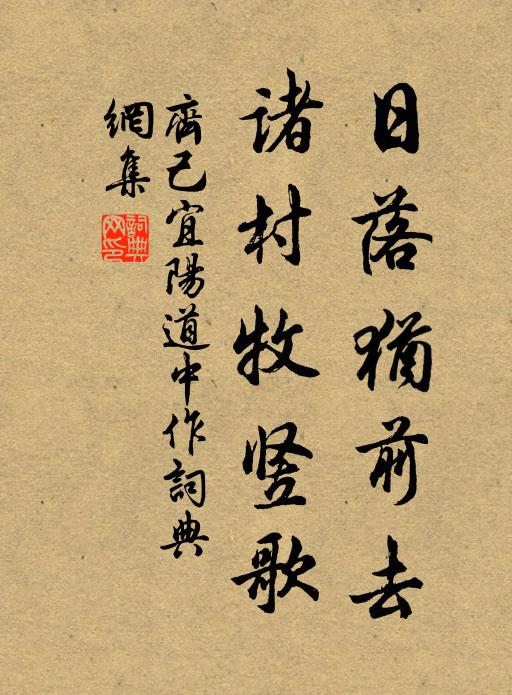 日落猶前去
諸村牧竪歌
齊己宜陽道中作詞典
網集
詞典網印